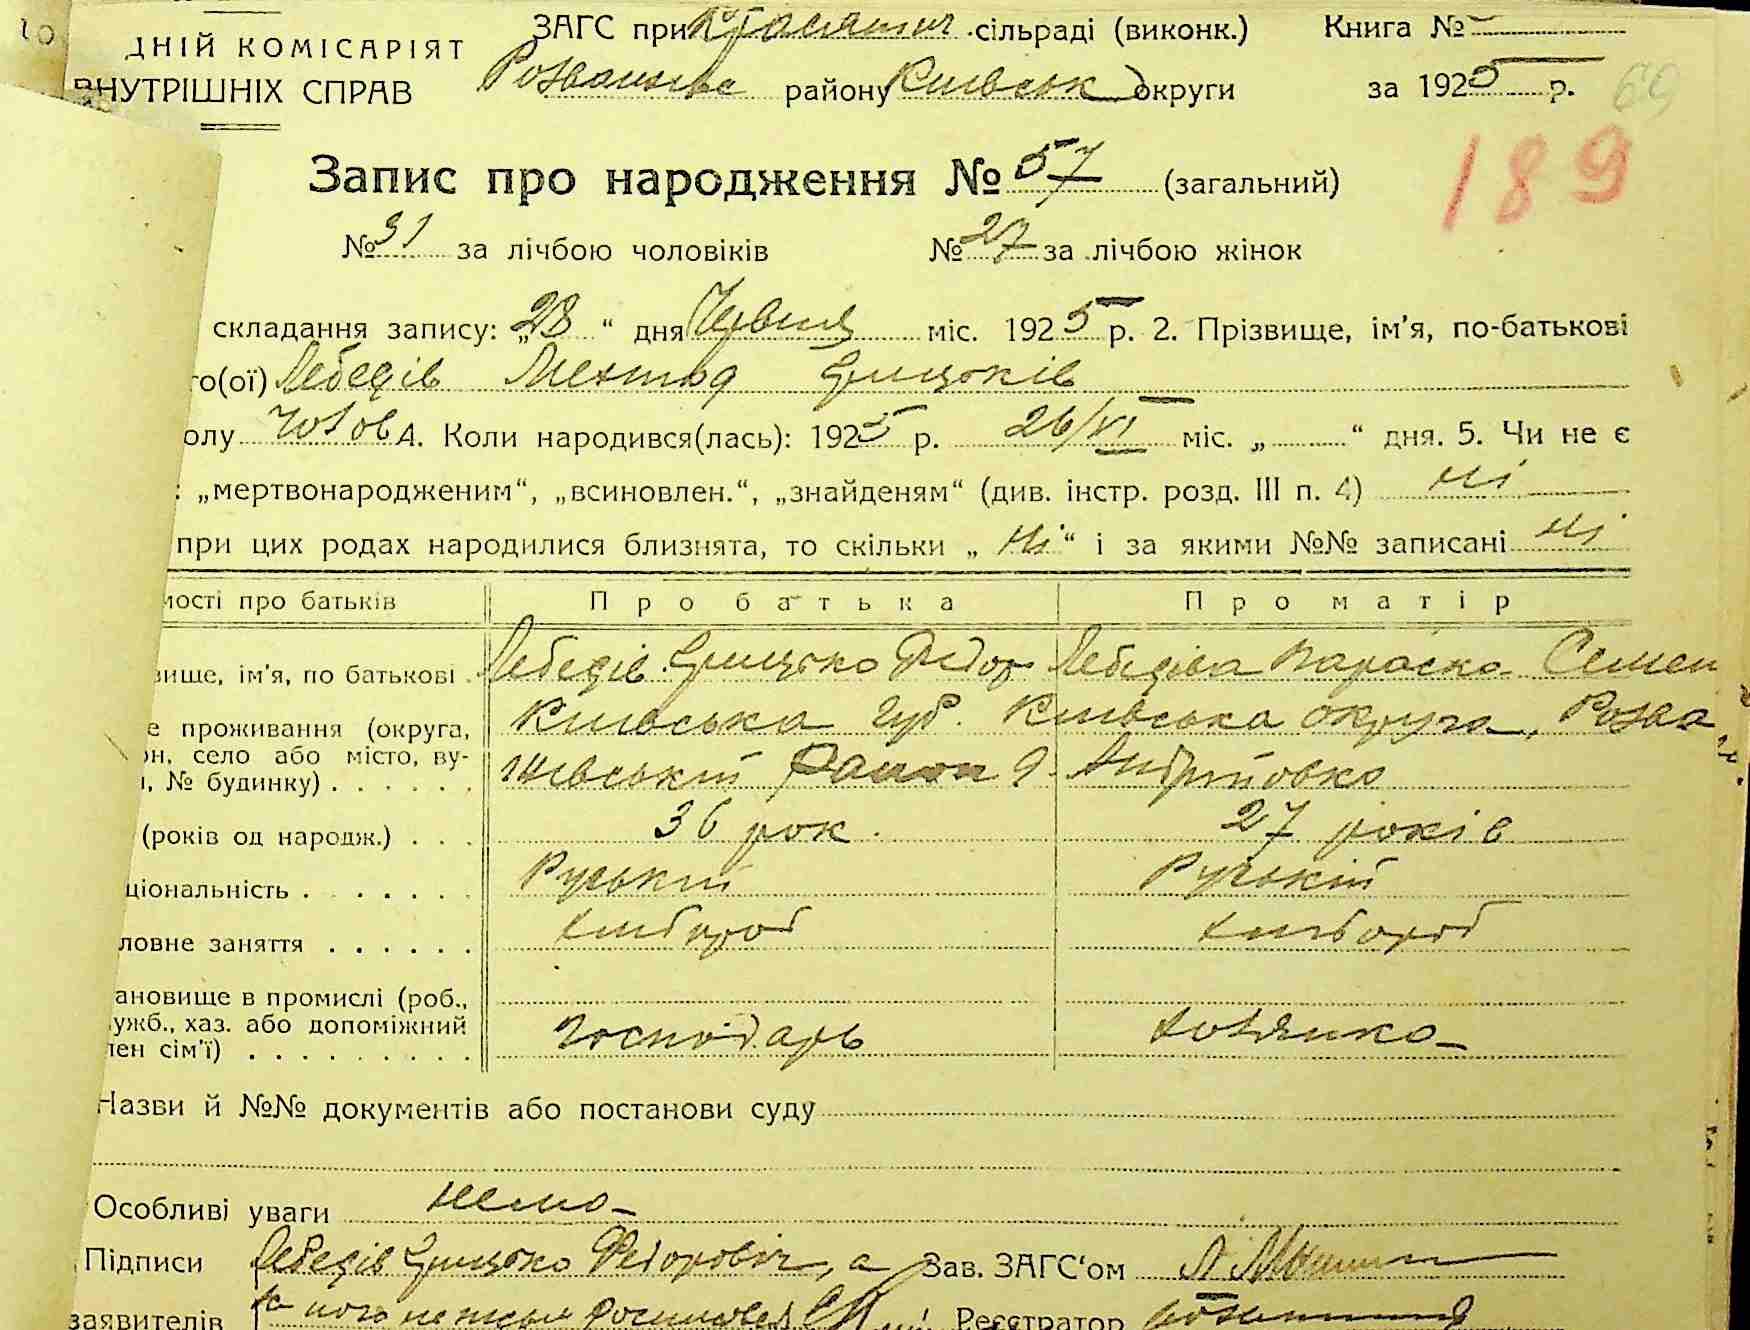 ДНІЙ КОМІСАРІЯТ
ВНУТРІШНІХ СПРАВ
ЗАГС при сільраді (виконк.) Книга №
району Київськ округи за 1925 р. 69
189
Запис про народження № 57 (загальний)
№ 31 за лічбою чоловіків № 27 за лічбою жінок
складання запису: „28“ дня Червня міс. 1925 р. 2. Прізвище, ім'я, по-батькові
го(ої) Лебедів Грицьків
олу Чолов 4. Коли народився(лась): 1925 р. 26/VI міс. „ “ дня. 5. Чи не є
: „мертвонародженим“, „всиновлен.“, „знайденям“ (див. інстр. розд. III п. 4) Ні
при цих родах народилися близнята, то скільки „Ні“ і за якими №№ записані Ні
мості про батьків Про батька Про матір
вище, ім'я, по батькові Лебедів Грицько Федор Лебедіва Параска Семен
е проживання (округа, Київська губ. Київська округа, Розва
он, село або місто, ву-
, № будинку) жівський Район с. Андріївка
(років од народж.) 36 рок. 27 років
ціональність Руський Руській
ловне заняття хлібороб хлібороб
ановище в промислі (роб.,
ужб., хаз. або допоміжний
лен сім'ї) господарь хозяйка
Назви й №№ документів або постанови суду
Особливі уваги нема
Підписи Лебедів Грицько Федоровіч, а Зав. ЗАГС'ом
заявителів за його неписьм росписався Реєстратор